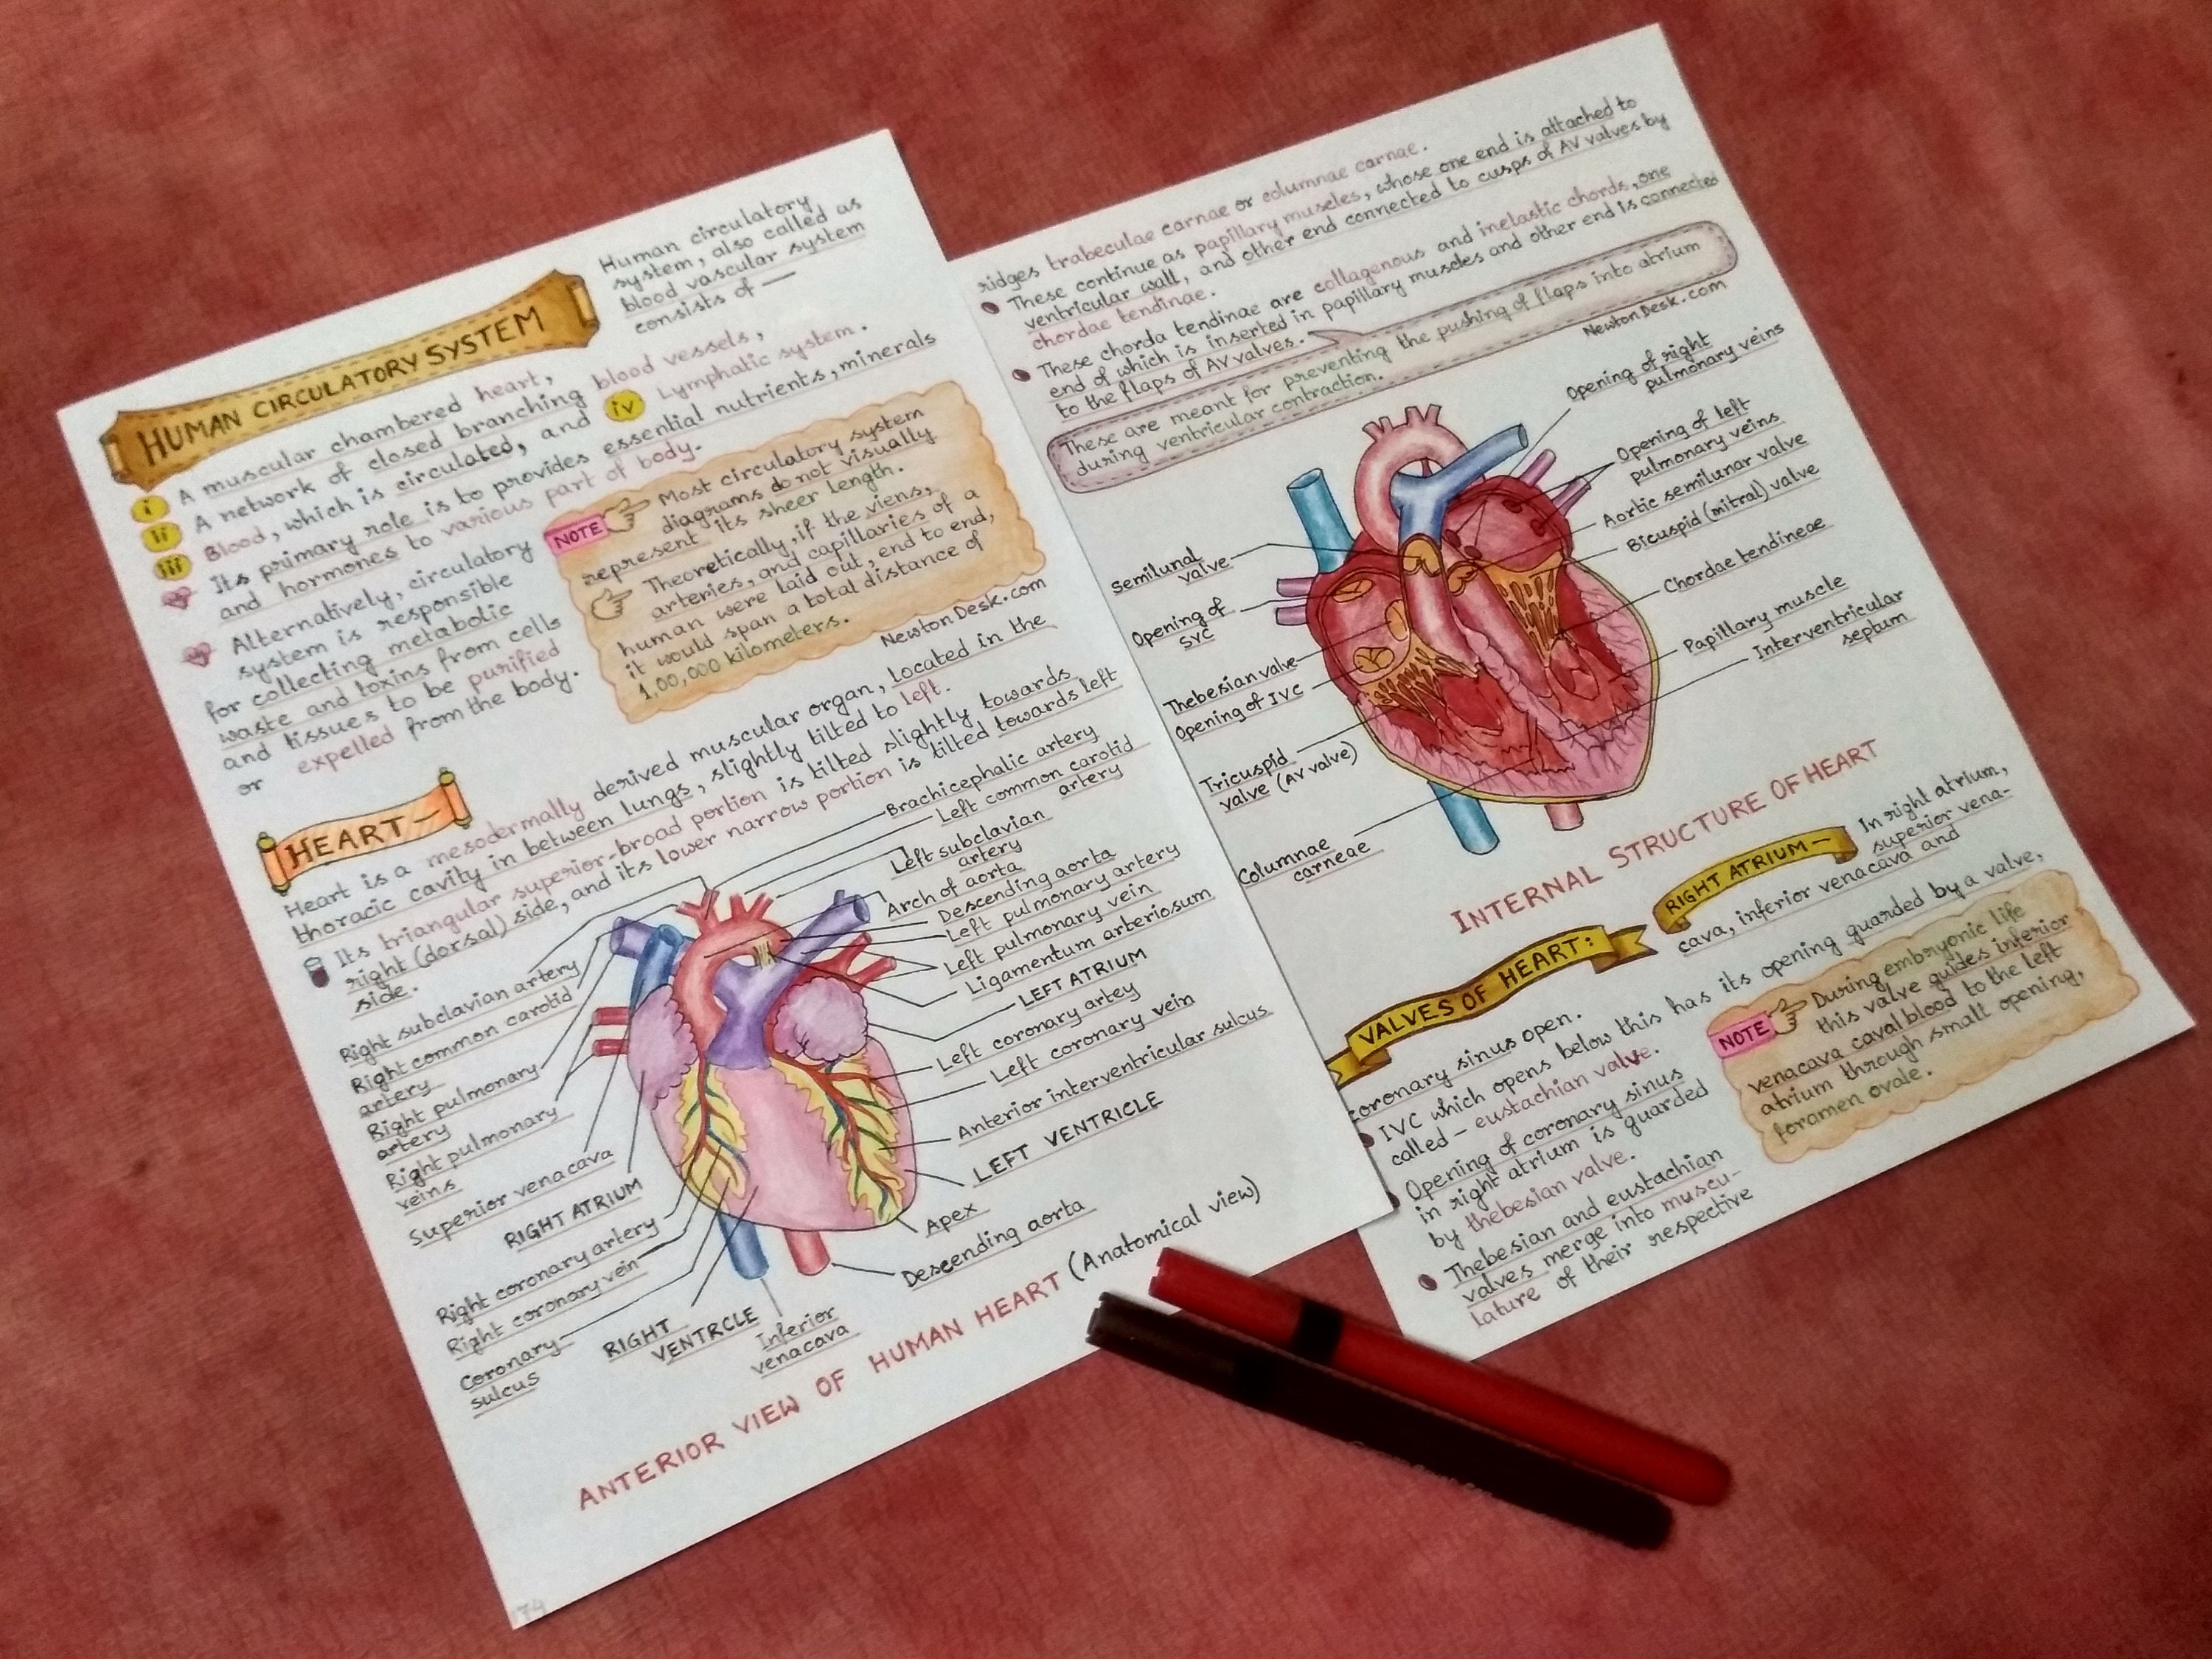 HUMAN CIRCULATORY SYSTEM
Human circulatory
system, also called as
blood vascular system
consists of —
i A muscular chambered heart,
ii A network of closed branching blood vessels,
iii Blood, which is circulated, and iv Lymphatic system.
Its primary role is to provides essential nutrients, minerals
and hormones to various part of body.
Alternatively, circulatory
system is responsible
for collecting metabolic
waste and toxins from cells
and tissues to be purified
or expelled from the body.
NOTE
Most circulatory system
diagrams do not visually
represent its sheer length.
Theoretically, if the viens,
arteries, and capillaries of a
human were laid out, end to end,
it would span a total distance of
1,00,000 kilometers.
NewtonDesk.com
HEART —
Heart is a mesodermally derived muscular organ, located in the
thoracic cavity in between lungs, slightly tilted to left.
Its triangular superior-broad portion is tilted slightly towards
right (dorsal) side, and its lower narrow portion is tilted towards left
side.
Brachicephalic artery
Left common carotid
artery
Left subclavian
artery
Arch of aorta
Descending aorta
Left pulmonary artery
Left pulmonary vein
Ligamentum arteriosum
LEFT ATRIUM
Left coronary artey
Left coronary vein
Anterior interventricular sulcus
LEFT VENTRICLE
Apex
Descending aorta
Right subclavian artery
Right common carotid
artery
Right pulmonary
artery
Right pulmonary
veins
Superior venacava
RIGHT ATRIUM
Right coronary artery
Right coronary vein
Coronary
sulcus
RIGHT
VENTRCLE
Inferior
venacava
ANTERIOR VIEW OF HUMAN HEART (Anatomical view)
174
ridges trabeculae carnae or columnae carnae.
These continue as papillary muscles, whose one end is attached to
ventricular wall, and other end connected to cusps of AV valves by
chordae tendinae.
These chorda tendinae are collagenous and inelastic chords, one
end of which is inserted in papillary muscles and other end is connected
to the flaps of AV valves.
These are meant for preventing the pushing of flaps into atrium
during ventricular contraction.
NewtonDesk.com
Opening of right
pulmonary veins
Opening of left
pulmonary veins
Aortic semilunar valve
Bicuspid (mitral) valve
Chordae tendineae
Papillary muscle
Interventricular
septum
Semilunal
valve
Opening of
SVC
Thebesian valve
Opening of IVC
Tricuspid
valve (AV valve)
Columnae
carneae
INTERNAL STRUCTURE OF HEART
VALVES OF HEART:
RIGHT ATRIUM —
In right atrium,
superior vena-
cava, inferior venacava and
coronary sinus open.
IVC which opens below this has its opening guarded by a valve,
called – eustachian valve.
Opening of coronary sinus
in right atrium is guarded
by thebesian valve.
Thebesian and eustachian
valves merge into muscu-
lature of their respective
NOTE
During embryonic life
this valve guides inferior
venacava caval blood to the left
atrium through small opening,
foramen ovale.